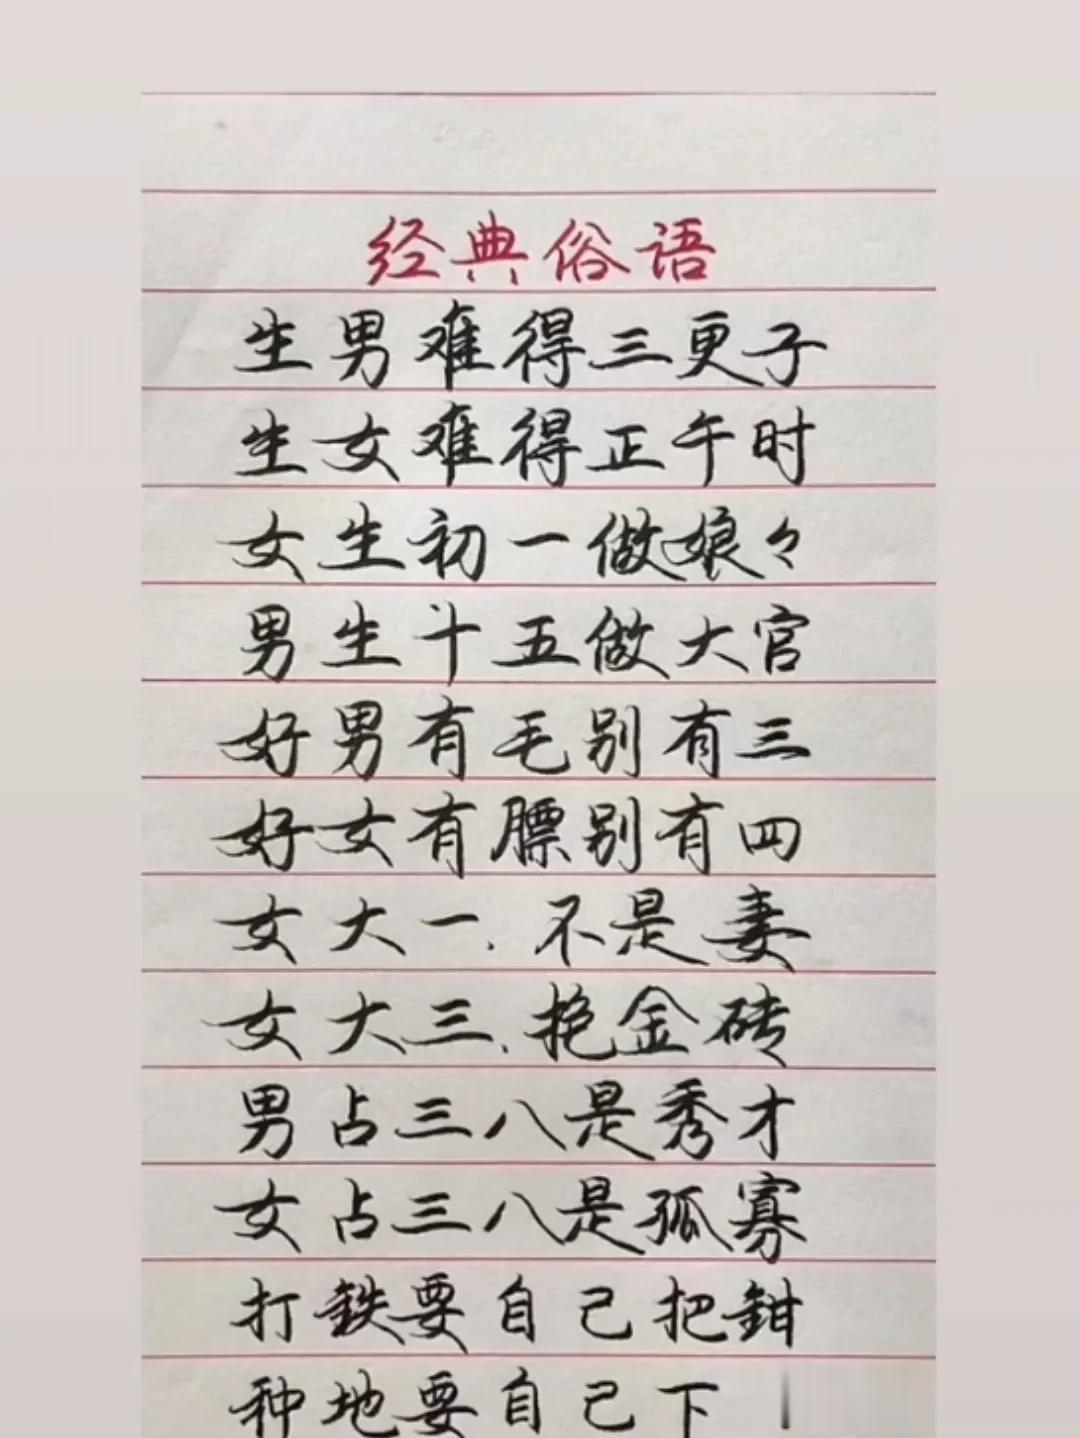 经典俗语
生男难得三更子
生女难得正午时
女生初一做娘々
男生十五做大官
好男有毛别有三
好女有膘别有四
女大一、不是妻
女大三、抱金砖
男占三八是秀才
女占三八是孤寡
打鉄要自己把鉗
种地要自己下